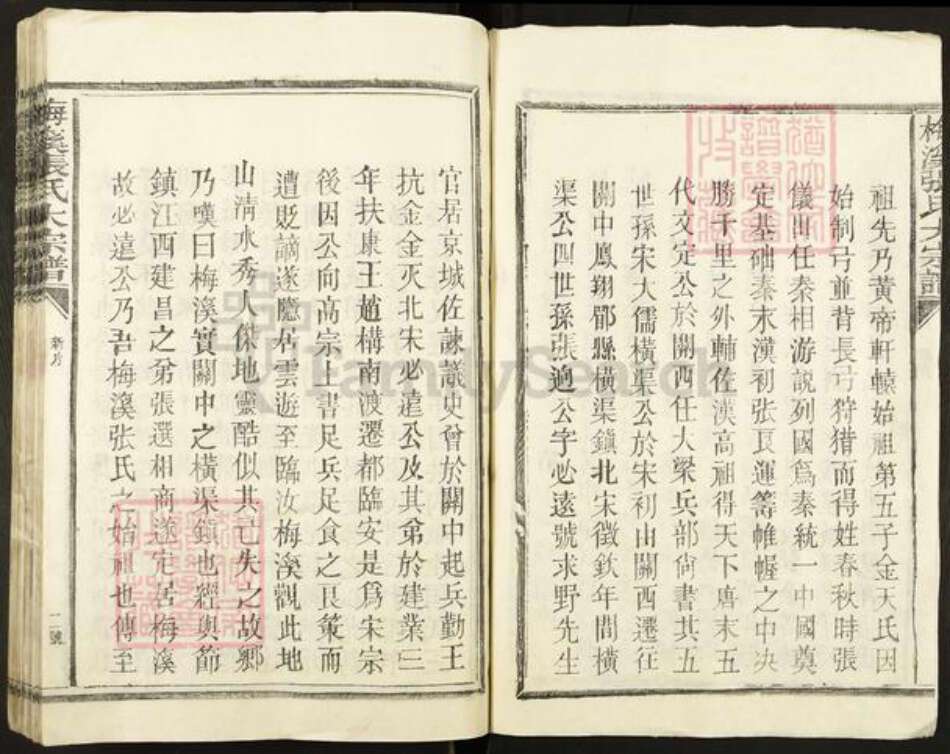 梅溪張氏大宗譜
祖先乃黃帝軒轅始祖第五子金天氏因
始制弓並背長弓狩猎而得姓春秋時張
儀出任秦相游說列國爲秦統一中國奠
定基础秦末漢初张良運籌帷幄之中决
勝千里之外輔佐漢高祖得天下唐末五
代文定公於關西任大梁兵部尙書其五
世孫宋大儒橫渠公於宋初由關西遷往
關中鳳翔郿縣橫渠鎮北宋徵欽年間橫
渠公四世孫張適公字必遠號求野先生
官居京城佐諫議史曾於關中起兵勤王
抗金金灭北宋必遠公及其弟於建業三
年扶康王趙構南渡遷都臨安是爲宋宗
後因公向高宗上書足兵足食之良策而
遭貶謫遂隱居雲遊至臨汝梅溪觀此地
山淸水秀人傑地靈酷似其已失之故鄉
乃嘆曰梅溪實關中之橫渠鎮也經與節
鎮江西建昌之弟張選相商遂定居梅溪
故必遠公乃吾梅溪张氏之始祖也傳至
梅溪張氏大宗譜
新序
二號
FamilySearch